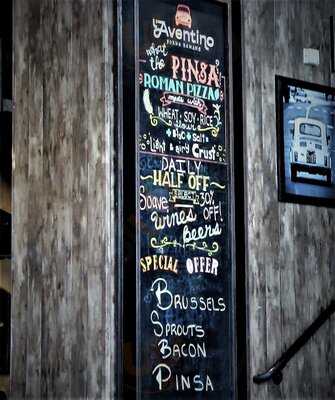 L'Aventino
what
the PINSA
ROMAN PIZZA
made with
WHEAT - SOY - RICE
flour
H2O + Salt
Light & airy Crust
DAILY
HALF OFF
Soave 30%
wines OFF!
Beers
SPECIAL OFFER
BRUSSELS
SPROUTS
BACON
PINSA